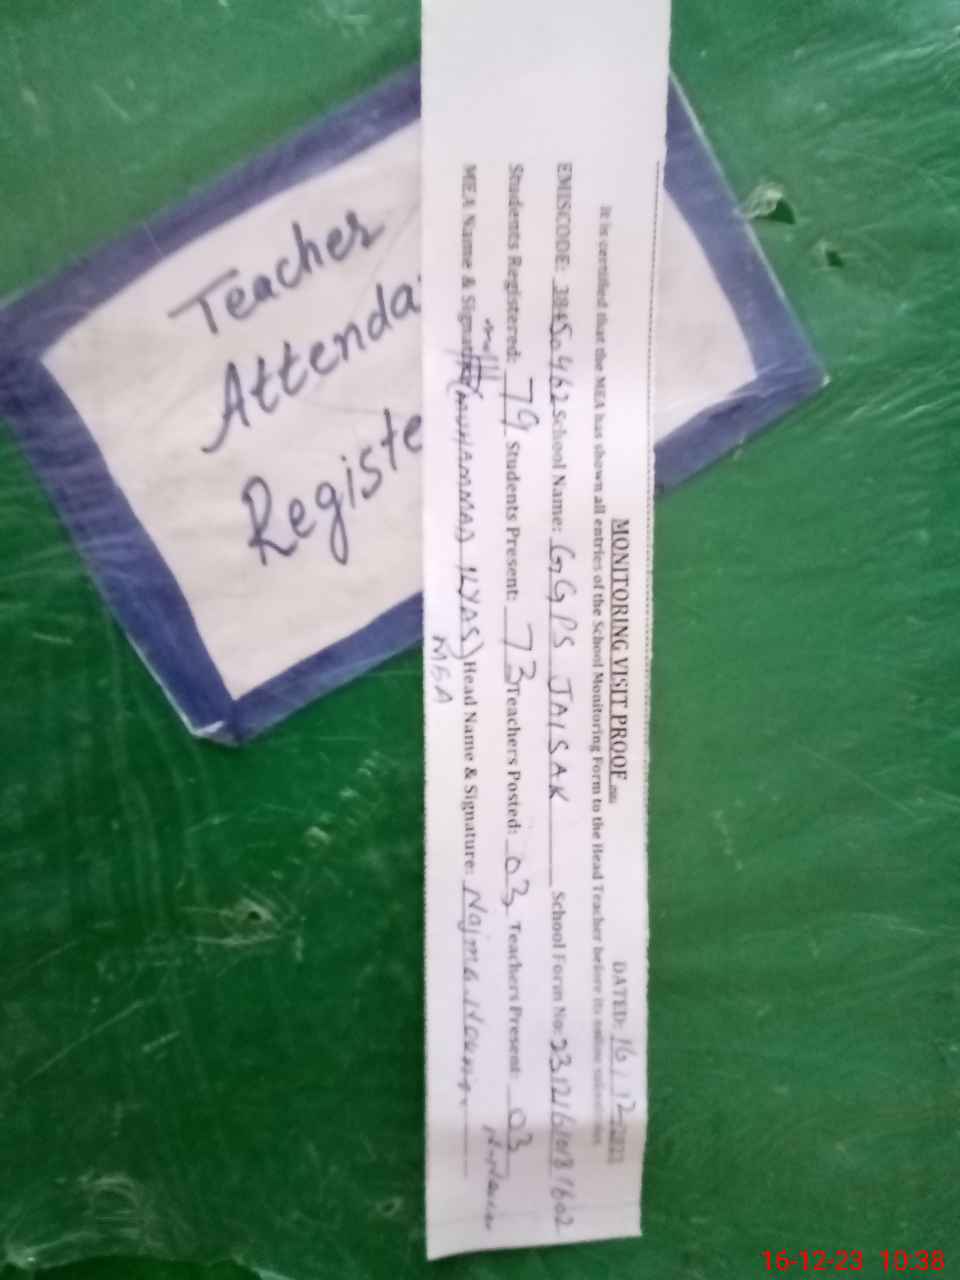 Teacher
Attenda
Registe
MONITORING VISIT PROOF
DATED: 16/12/
It is certified that the MEA has shown all entries of the School Monitoring Form to the Head Teacher before its online
EMISCODE: School Name: GGPS JAISAK School Form No:
Students Registered: 79 Students Present: 73 Teachers Posted: 03 Teachers Present: 03
MEA Name & Signature (MUHAMMAD ILYAS) Head Name & Signature: Najma
MEA
16-12-23 10:38